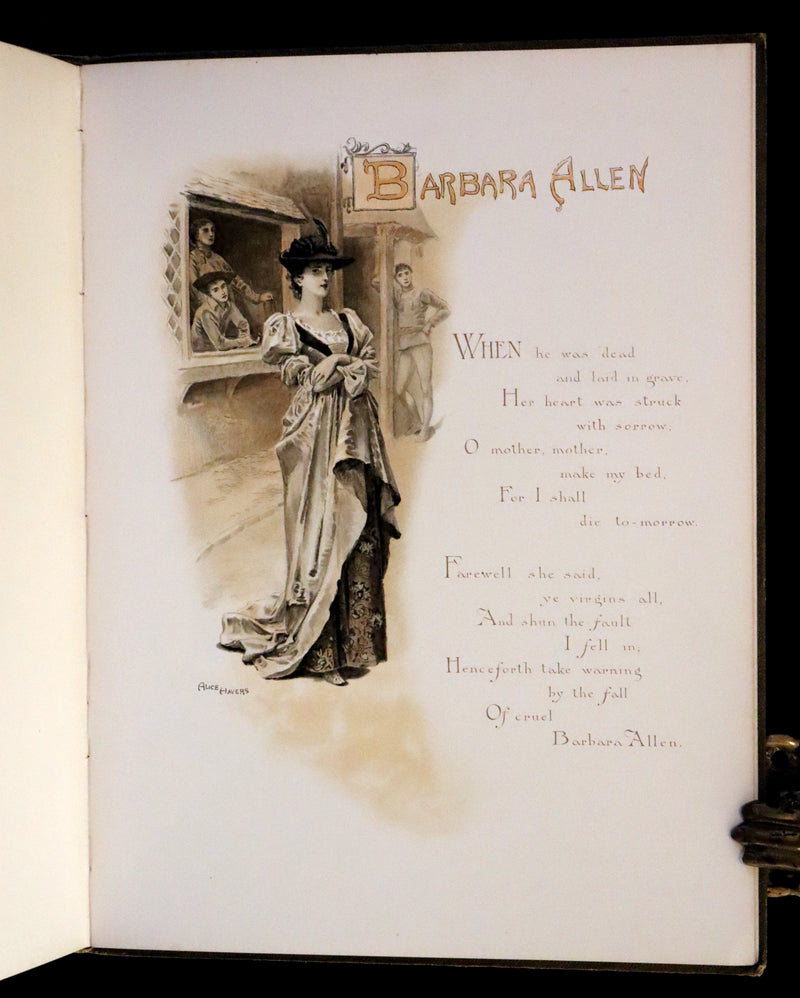 BARBARA ALLEN
WHEN he was dead
and laid in grave,
Her heart was struck
with sorrow;
O mother, mother,
make my bed,
For I shall
die to-morrow.
Farewell she said,
ye virgins all,
And shun the fault
I fell in;
Henceforth take warning
by the fall
Of cruel
Barbara Allen.
ALICE HAVERS